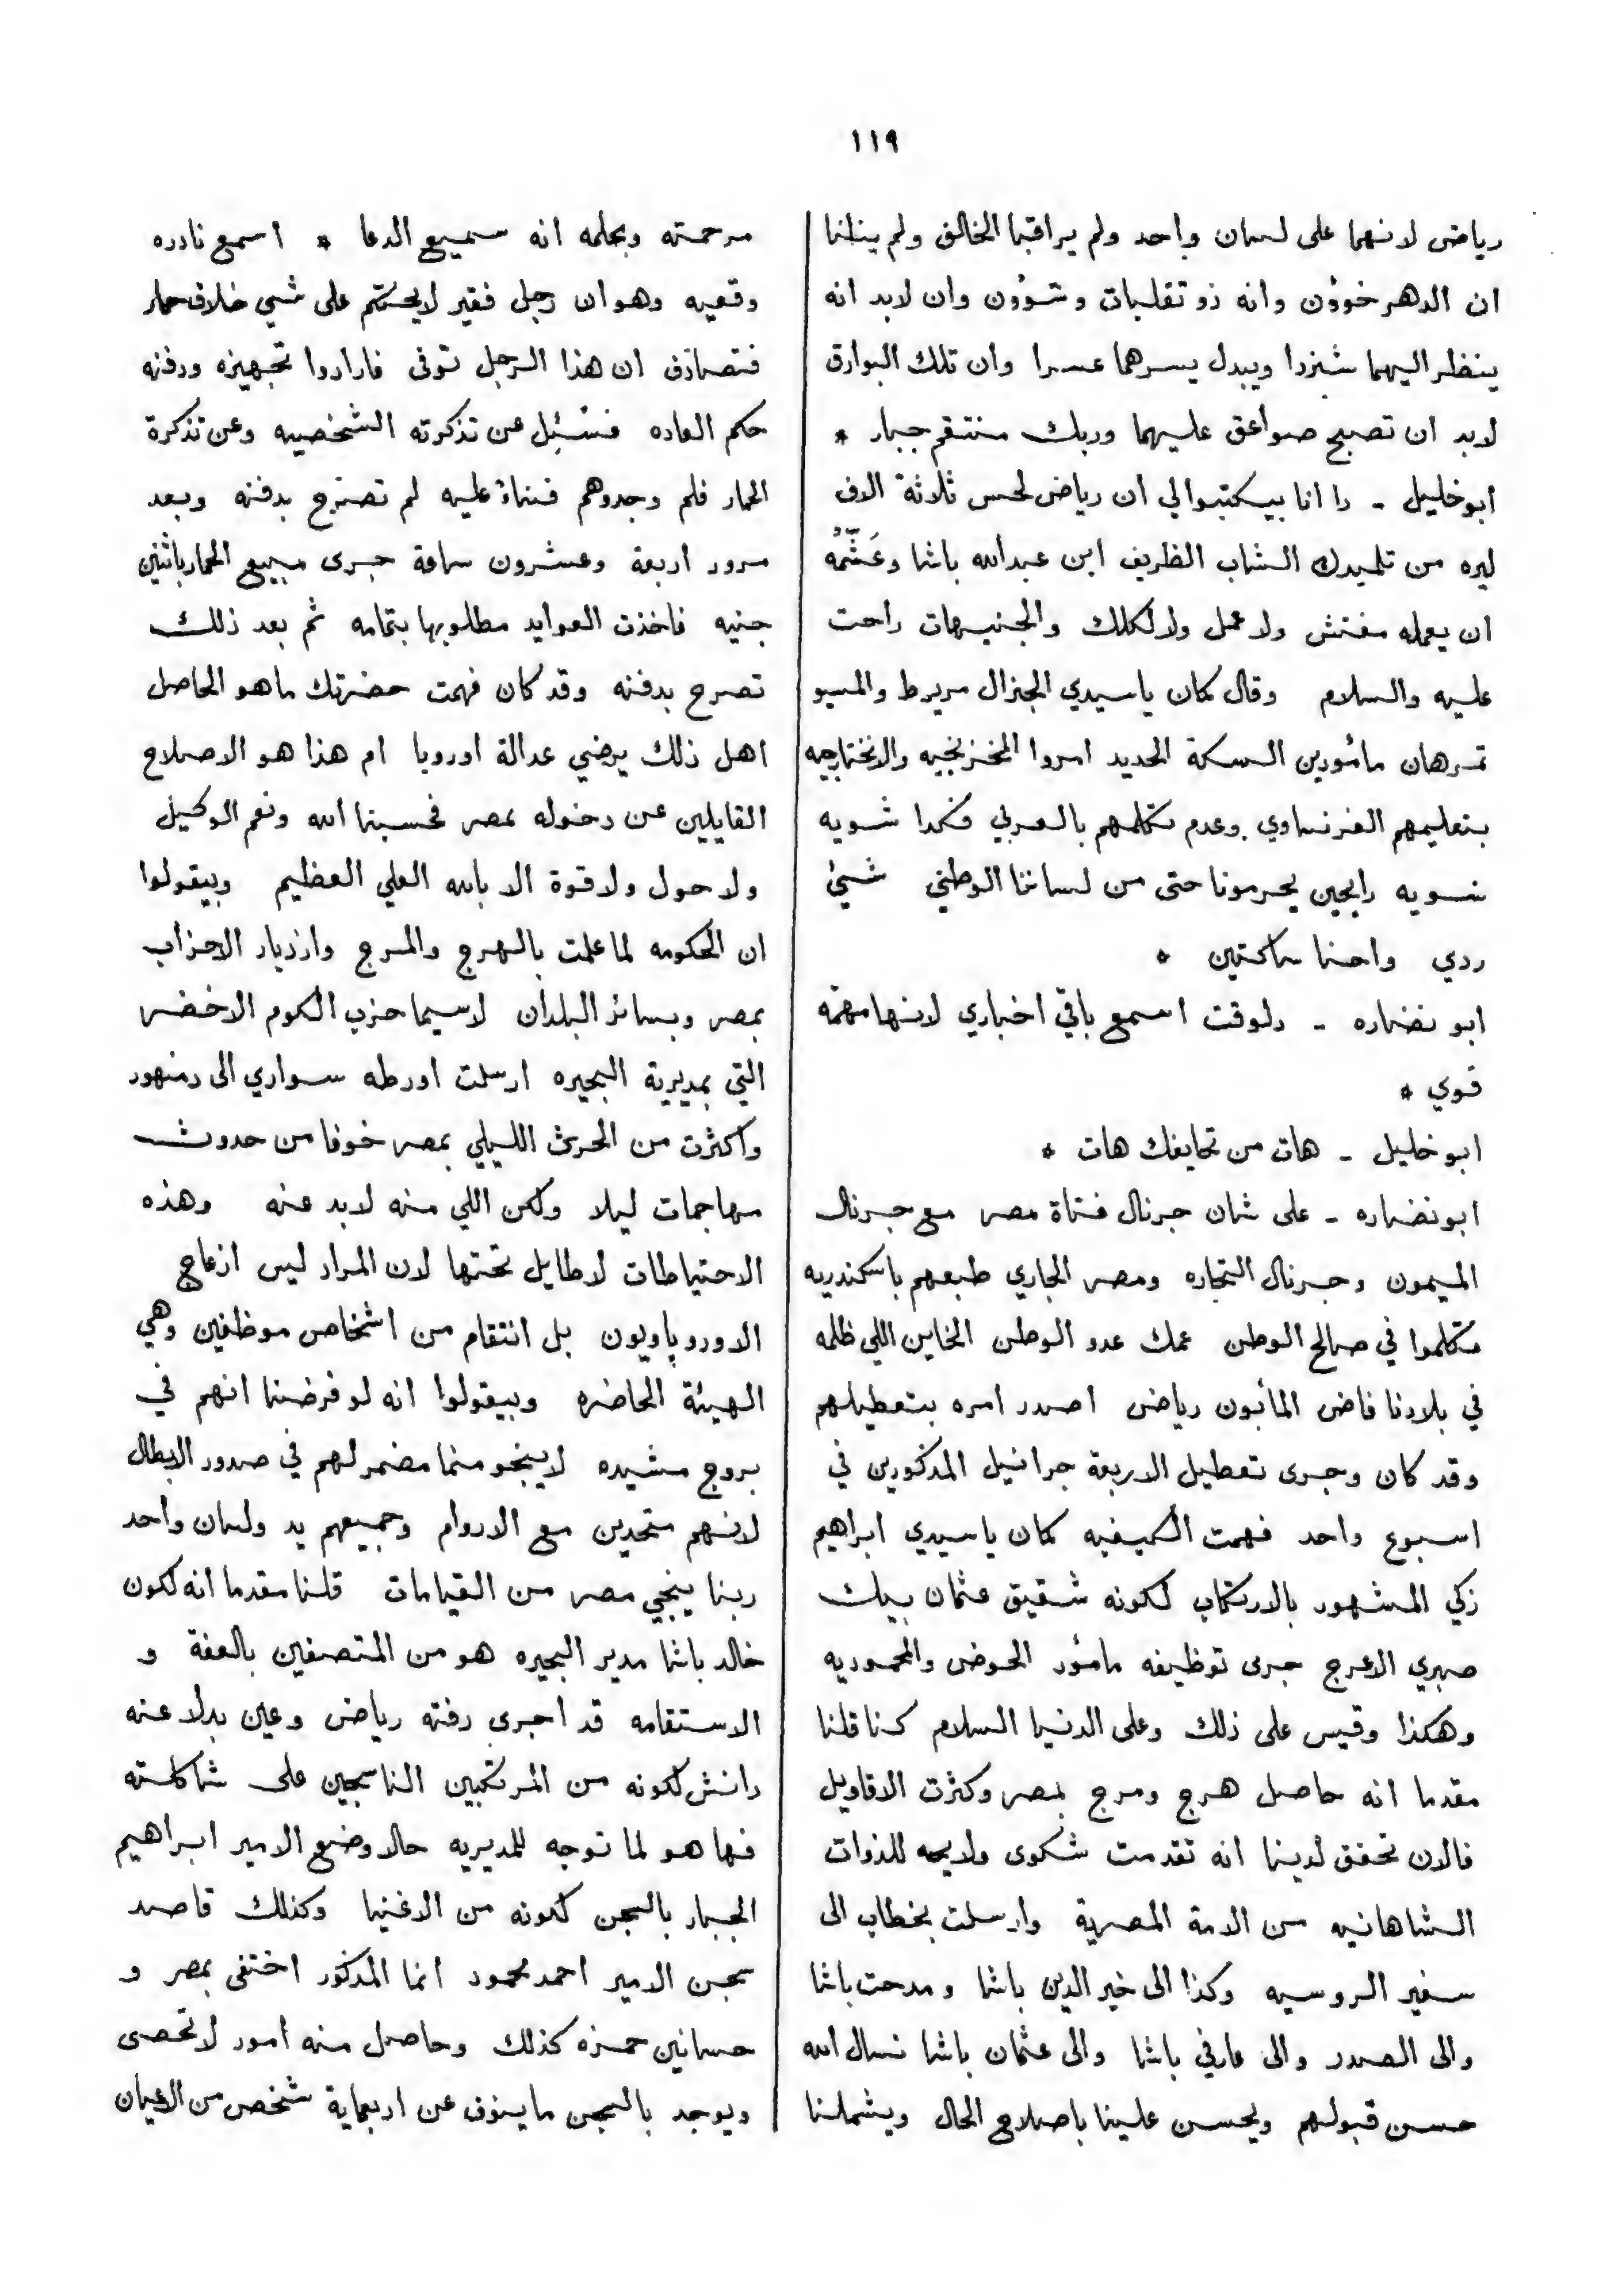 ١١٩
رياض لانهما على لسان واحد ولم يراقبا الخالق ولم
ان الدهر خوؤن وانه ذو تقلبات وشوؤن وان لابد انه
ينظر اليهما شزرا ويبدل يسرهما عسرا وان تلك البوارق
لابد ان تصبح صواعق عليهما وربك منتقم جبار *
ابو خليل - دا انا بيكتبوا لي ان رياض لحس ثلاثة الاف
ليره من تلميدك الشاب الظريف ابن عبدالله باشا وعَشَّمُه
ان يعمله مفتش ولا عمل ولا لكلك والجنيهات راحت
عليه والسلام وقال كمان ياسيدي الجنرال مريرط والمسيو
تمرهان مأمورين السكة الحديد امروا المخزنجيه
بتعليمهم الفرنساوي وعدم تكلمهم بالعربي فكدا شويه
شويه رايحين يحرمونا حتى من لساننا الوطني شيئ
ردي واحنا ساكتين *
ابو نضاره - دلوقت اسمع باقي اخباري لانها مهمّه
قوي *
ابو خليل - هات من تحايفك هات *
ابو نضاره - على شان جرنال فتاة مصر مع جرنال
الميمون وجرنال التجاره ومصر الجاري طبعهم باسكندريه
متكلموا في صالح الوطن عمك عدو الوطن الخاين اللي ظلمه
في بلادنا فاض المأبون رياض اصدر امره بتعطيلهم
وقد كان وجرى تعطيل الاربعة جرانيل المذكورين في
اسبوع واحد فهمت الكيفيه كمان ياسيدي ابراهيم
زكي المشهور بالارتكاب لكونه شقيق عثمان بيك
صبري الاعرج جرى توظيفه مأمور الحوض والمحموديه
وهكذا وقيس على ذلك وعلى الدنيا السلام كنا قلنا
مقدما انه حاصل هرج ومرج بمصر وكثرت الاقاويل
فالان تحقق لدينا انه تقدمت شكوى ولايحه للذوات
الشاهانيه من الامة المصرية وارسلت بخطاب الى
سفير الروسيه وكذا الى خير الدين باشا ومدحت باشا
والى الصدر والى عارفي باشا والى عثمان باشا نسال الله
حسن قبولهم ويحسن علينا باصلاح الحال ويشملنا
مرحمته وبحلمه انه سميع الدعا * اسمع نادره
وقعيه وهو ان رجل فقير لايحتكم على شي خلاف حمار
فتصادف ان هذا الرجل توفى فارادوا تجهيزه ودفنه
حكم العاده فسُئِل عن تذكرته الشخصيه وعن تذكرة
الحمار فلم وجدوهم فبناءً عليه لم تصرّح بدفنه وبعد
مرور اربعة وعشرون ساعة جرى مبيع الحمار باثنين
جنيه فاخذت العوايد مطلوبها بتمامه ثم بعد ذلك
تصرح بدفنه وقد كان فهمت حضرتك ماهو الحاصل
اهل ذلك يرضي عدالة اوروبا ام هذا هو الاصلاح
القايلين عن دخوله بمصر فحسبنا الله ونعم الوكيل
ولا حول ولا قوة الا بالله العلي العظيم وبيقولوا
ان الحكومه لما علمت بالهرج والمرج وازدياد الاحزاب
بمصر وبسائر البلدان لاسيما حزب الكوم الاخضر
التي بمديرية البحيره ارسلت اورطه سواري الى دمنهور
واكثرت من الحرث الليلي بمصر خوفا من حدوث
مهاجمات ليلا ولكن اللي منه لابد عنه وهذه
الاحتياطات لاطايل تحتها لان المراد ليس ازعاج
الاوروپاويون بل انتقام من اشخاص موظفين وهي
الهيئة الحاضره وبيقولوا انه لو فرضنا انهم في
بروج مشيده لاينجو منما مضمر لهم في صدور الابطال
لانهم متحدين مع الاروام وجميعهم يد ولسان واحد
ربنا ينجي مصر من القيامات قلنا مقدما انه لكون
خالد باشا مدير البحيره هو من المتصفين بالعفة و
الاستقامه قد اجرى رفته رياض وعين بدلا عنه
دانش لكونه من المرتكبين الناسجين على شاكلته
فها هو لما توجه للمديريه حالا وضع الامير ابراهيم
الجبار بالسجن لكونه من الاغنيا وكذلك قاصد
سجن الامير احمد محمود انما المذكور اختفى بمصر و
حسانين حمزه كذلك وحاصل منه امور لاتحصى
ويوجد بالسجن ماينوف عن اربعماية شخص من الاعيان